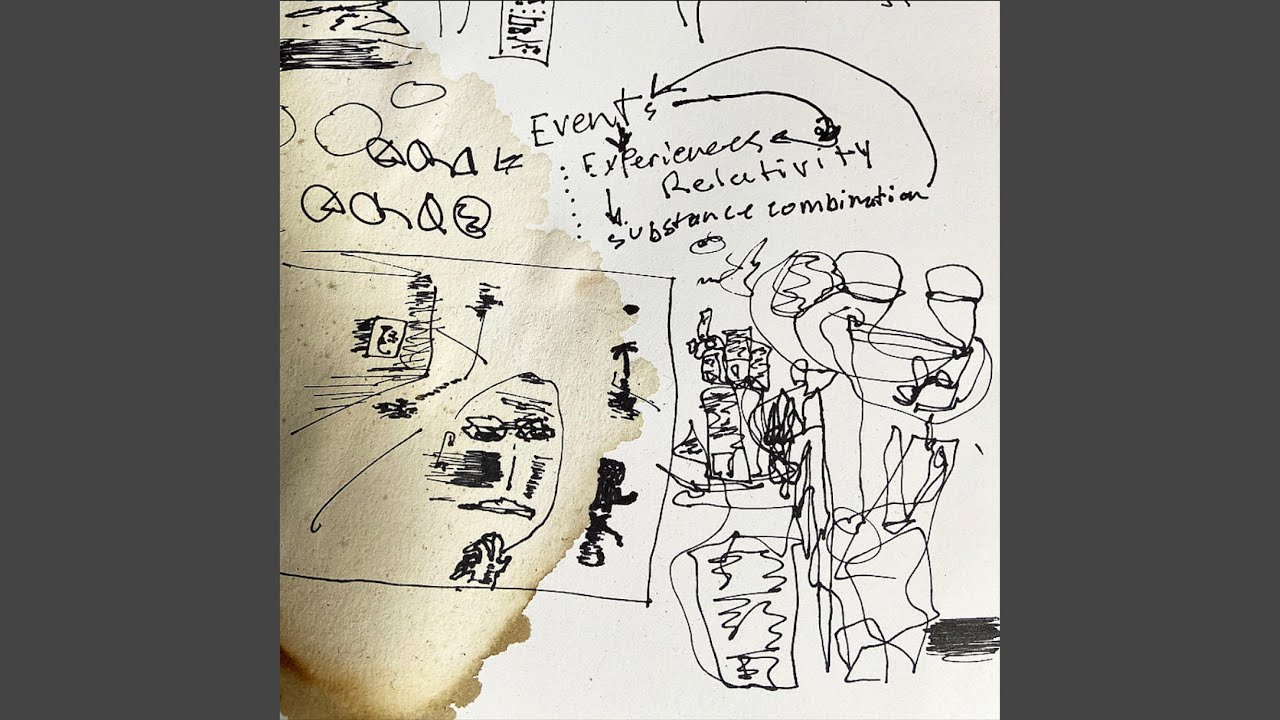 Events
Experiences
Relativity
substance combination